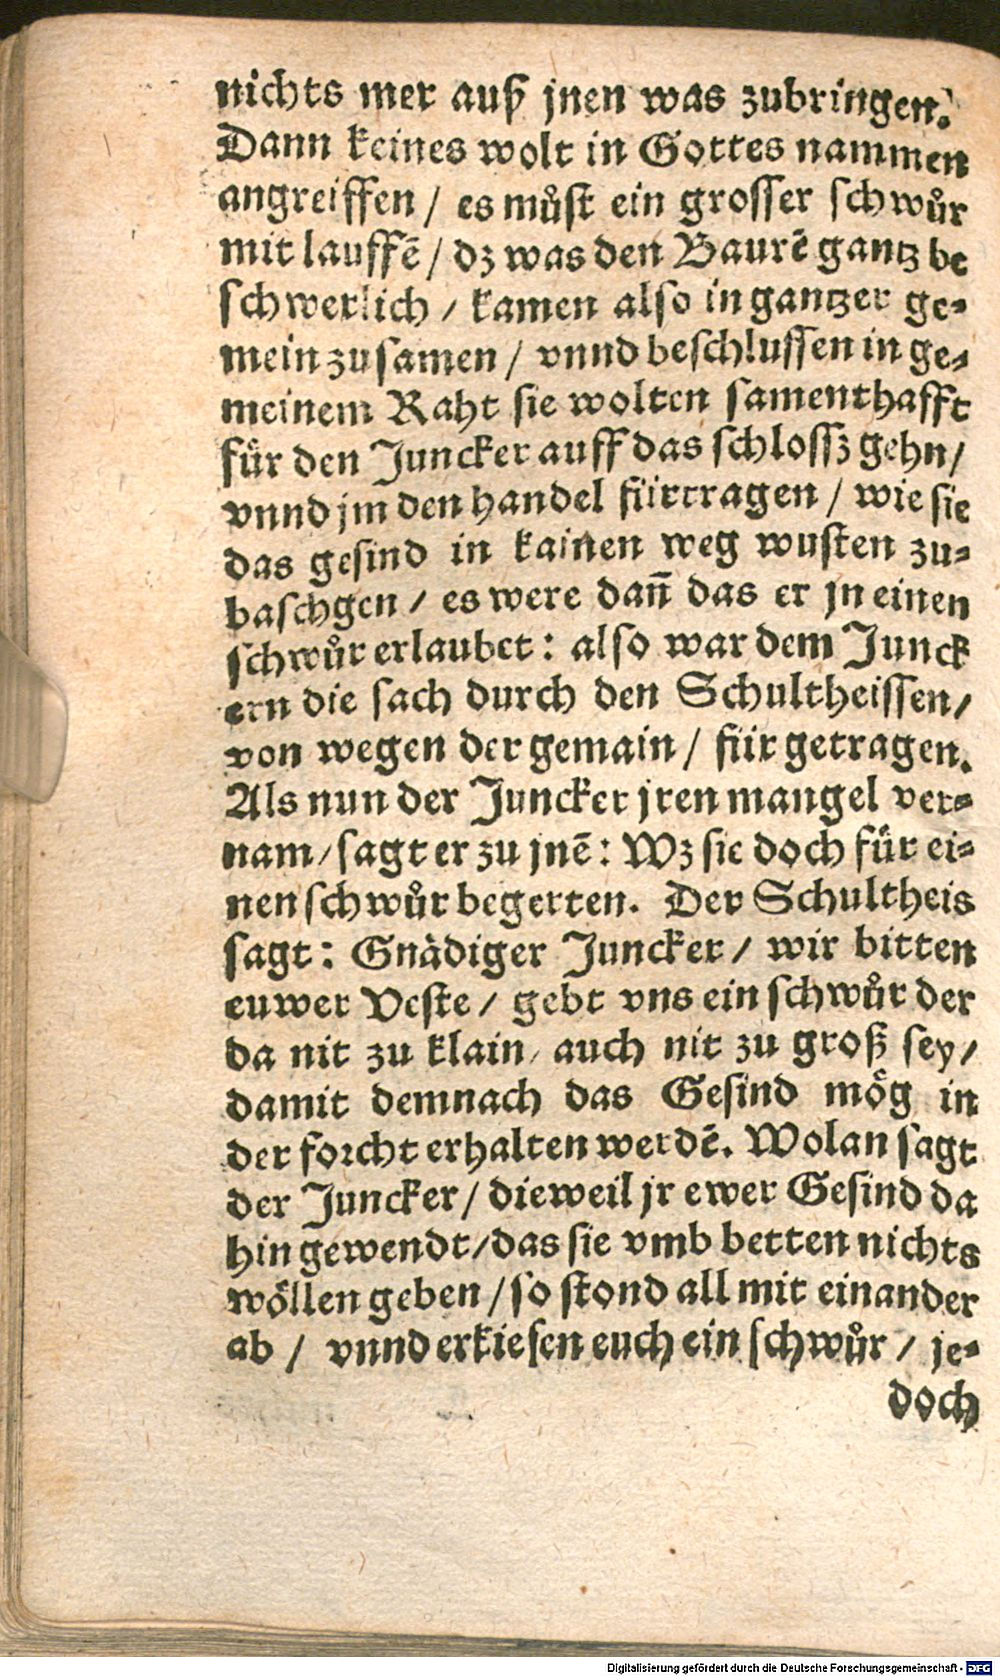 nichts mer auß jnen was zubringen.
Dann keines wolt in Gottes nammen
angreiffen / es můst ein grosser schwůr
mit lauffẽ / dz was den Baurẽ gantz be
schwerlich / kamen also in gantzer ge-
mein zusamen / vnnd beschlussen in ge-
meinem Raht sie wolten samenthafft
fůr den Juncker auff das schlossz gehn /
vnnd jm den handel fürtragen / wie sie
das gesind in kainen weg wusten zu-
baschgen / es were dañ das er jn einen
schwůr erlaubet : also war dem Junck
ern die sach durch den Schultheissen /
von wegen der gemain / für getragen.
Als nun der Juncker jren mangel ver-
nam / sagt er zu jnẽ : Wz sie doch fůr ei-
nen schwůr begerten. Der Schultheis
sagt : Gnädiger Juncker / wir bitten
euwer Veste / gebt vns ein schwůr der
da nit zu klain / auch nit zu groß sey /
damit demnach das Gesind mög in
der forcht erhalten werdẽ. Wolan sagt
der Juncker / dieweil jr ewer Gesind da
hin gewendt / das sie vmb betten nichts
wöllen geben / so stond all mit einander
ab / vnnd erkiesen euch ein schwůr / je-
doch
Digitalisierung gefördert durch die Deutsche Forschungsgemeinschaft - DFG